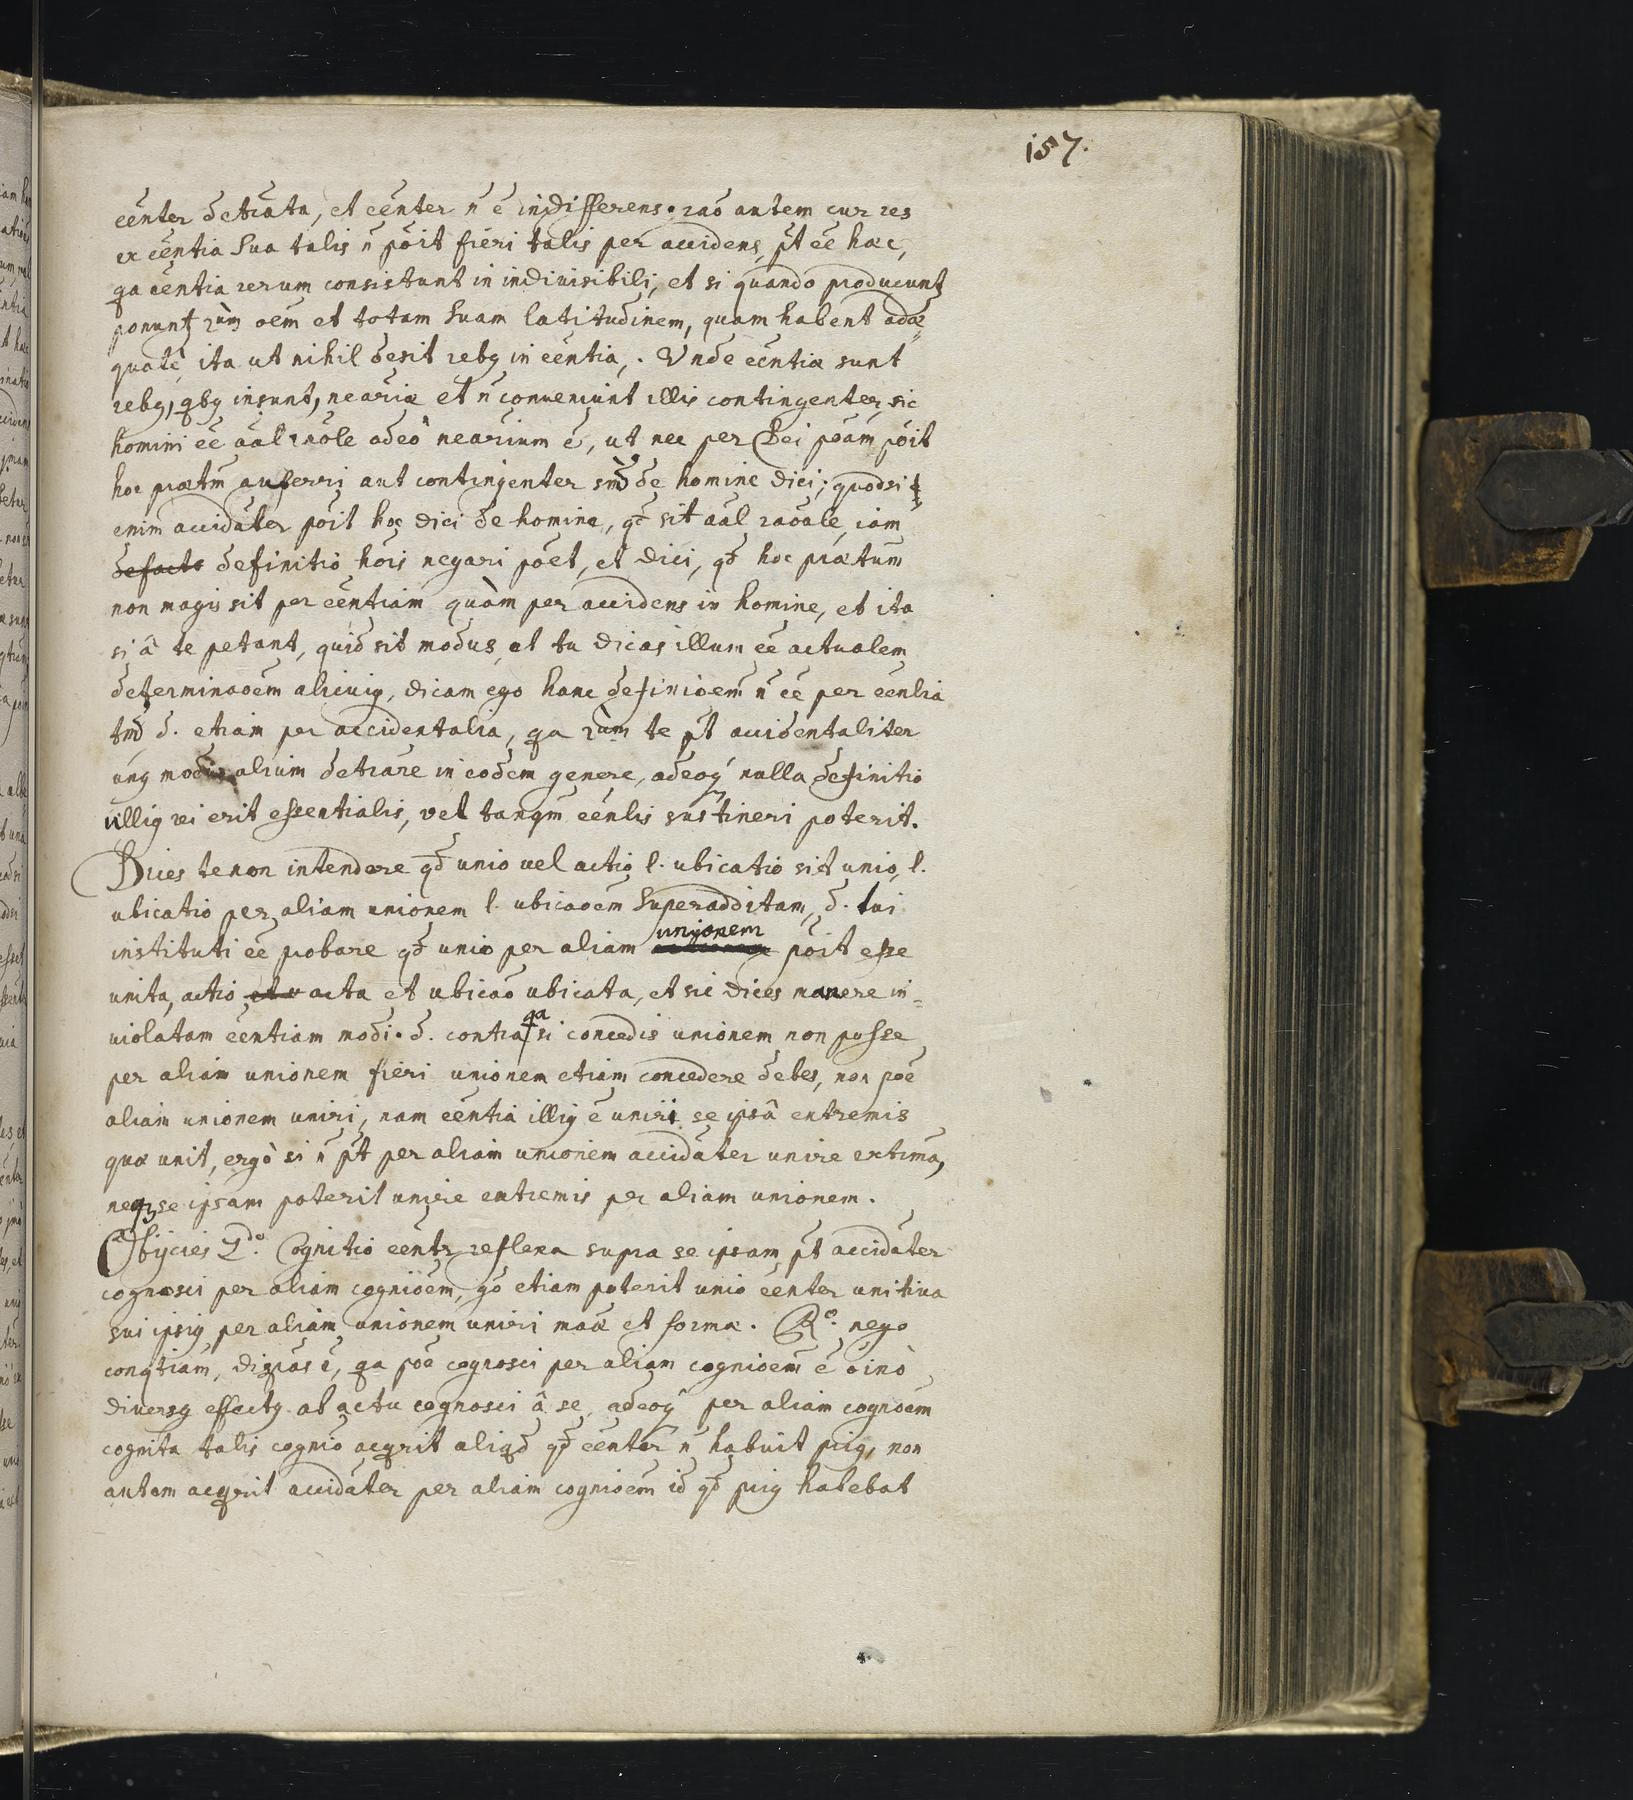 157.
eenter detrata, et eenter n̄ ē indifferens. rao autem cur res
ex eentia sua talis n̄ poit fieri talis per accidens, pt ee haec,
qa eentia rerum consistunt in indivisibili, et si quando producunt
ponunt rūm oem et totam suam latitudinem, quam habent adae=
quatè, ita ut nihil desit rebq in eentia,. Unde eentiae sunt
rebq, qbq insunt, neariae et n̄ conveniunt illis contingenter, sic
homini ee aal rnole adeò nearium ē, ut nec per Dei poam poit
hoc praetm auferri aut contingenter smd de homine dici; quodsi
enim accidater poit hoc dici de homine, qd sit aal raoale, iam
de facto definitio hois negari poet, et dici, qd hoc praetum
non magis sit per eentiam quàm per accidens in homine, et ita
si â te petant, quid sit modus, et tu dicas illum ee actualem
determinaoem alicuiq, dicam ego hanc definioem n̄ ee per eentia
tmd d. etiam per accidentalia, qa rūm te pt accidentaliter
unq modus alium detrare in eodem genere, adeoq nulla definitio
ulliq rei erit essentialis, vel tanqm eenlis sustineri poterit.
Dices te non intendere qd unio vel actio l. ubicatio sit unio, l.
ubicatio per aliam unionem l. ubicaoem superadditam, d. tui
instituti ee probare qd unio per aliam unionem poit esse
unita, actio et u acta et ubicao ubicata, et sic dices manere in=
violatam eentiam modi. d. contra qa si concedis unionem non posse
per aliam unionem fieri unionem etiam concedere debes, non poe
aliam unionem uniri, nam eentia illiq ē uniri se ipsâ extremis
quae unit, ergò si n̄ pt per aliam unionem accidater unire extrema,
neq se ipsam poterit unire extremis per aliam unionem.
Obijcies 2do. Cognitio eentr reflexa supra se ipsam pt accidater
cognosci per aliam cognioem, go etiam poterit unio eenter unitiva
sui ipsiq per aliam unionem uniri maae et formae. Ro. nego
conqtiam, dispas ē, qa poe cognosci per aliam cognioem ē oinò
diversq effectq ab actu cognosci â se, adeoq per aliam cognoem
cognita talis cognio acqrit aliqd qd eenter n̄ habuit priq, non
autem acqrit accidater per aliam cognioem id qd priq habebat